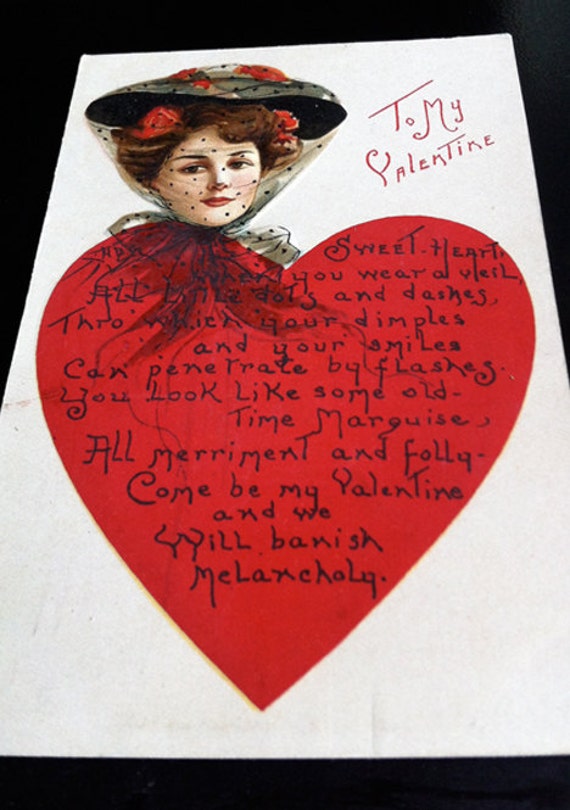 To My
Valentine
Sweet-Heart,
when you wear a veil,
All little dots and dashes,
Thro' which your dimples
and your smiles
Can penetrate by flashes.
You look like some old-
Time Marquise,
All merriment and folly-
Come be my Valentine
and we
Will banish
Melancholy.